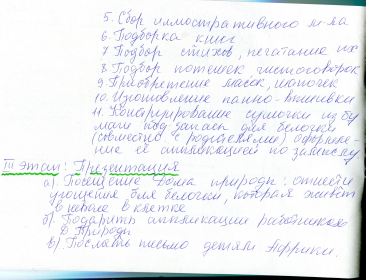 5. Сбор иллюстративного м-ла
6. Подборка книг
7. Подбор стихов, печатание их
8. Подбор потешек, чистоговорок
9. Приобретение масок, шапочек
10. Изготовление панно-вышивки
11. Конструирование сумочки из бу
маги под запасы для белочки
(совместно с родителями) Оформле-
ние её аппликацией по замыслу
III этап: Презентация
а). Посещение Дома природы: отнести
угощения для белочки, которая живёт
в клетке
б). Подарить аппликации работникам
Д. Природы
в). Послать письмо детям Африки.